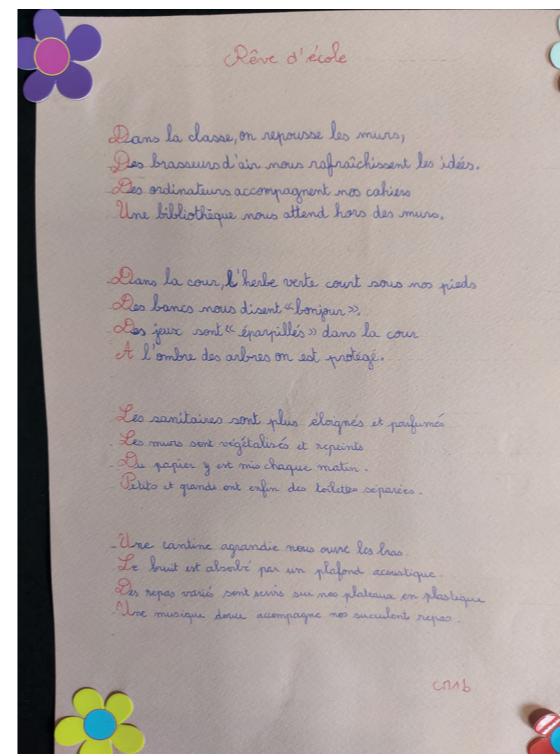 Rêve d'école
Dans la classe, on repousse les murs,
Des brasseurs d'air nous rafraîchissent les idées.
Des ordinateurs accompagnent nos cahiers
Une bibliothèque nous attend hors des murs.
Dans la cour, l'herbe verte court sous nos pieds
Des bancs nous disent « bonjour ».
Des jeux sont « éparpillés » dans la cour
A l'ombre des arbres on est protégé.
Les sanitaires sont plus éloignés et parfumés
Les murs sont végétalisés et repeints
Du papier y est mis chaque matin.
Petits et grands ont enfin des toilettes séparées.
Une cantine agrandie nous ouvre les bras.
Le bruit est absorbé par un plafond acoustique.
Des repas variés sont servis sur nos plateaux en plastique
Une musique douce accompagne nos succulent repas.
CM1b